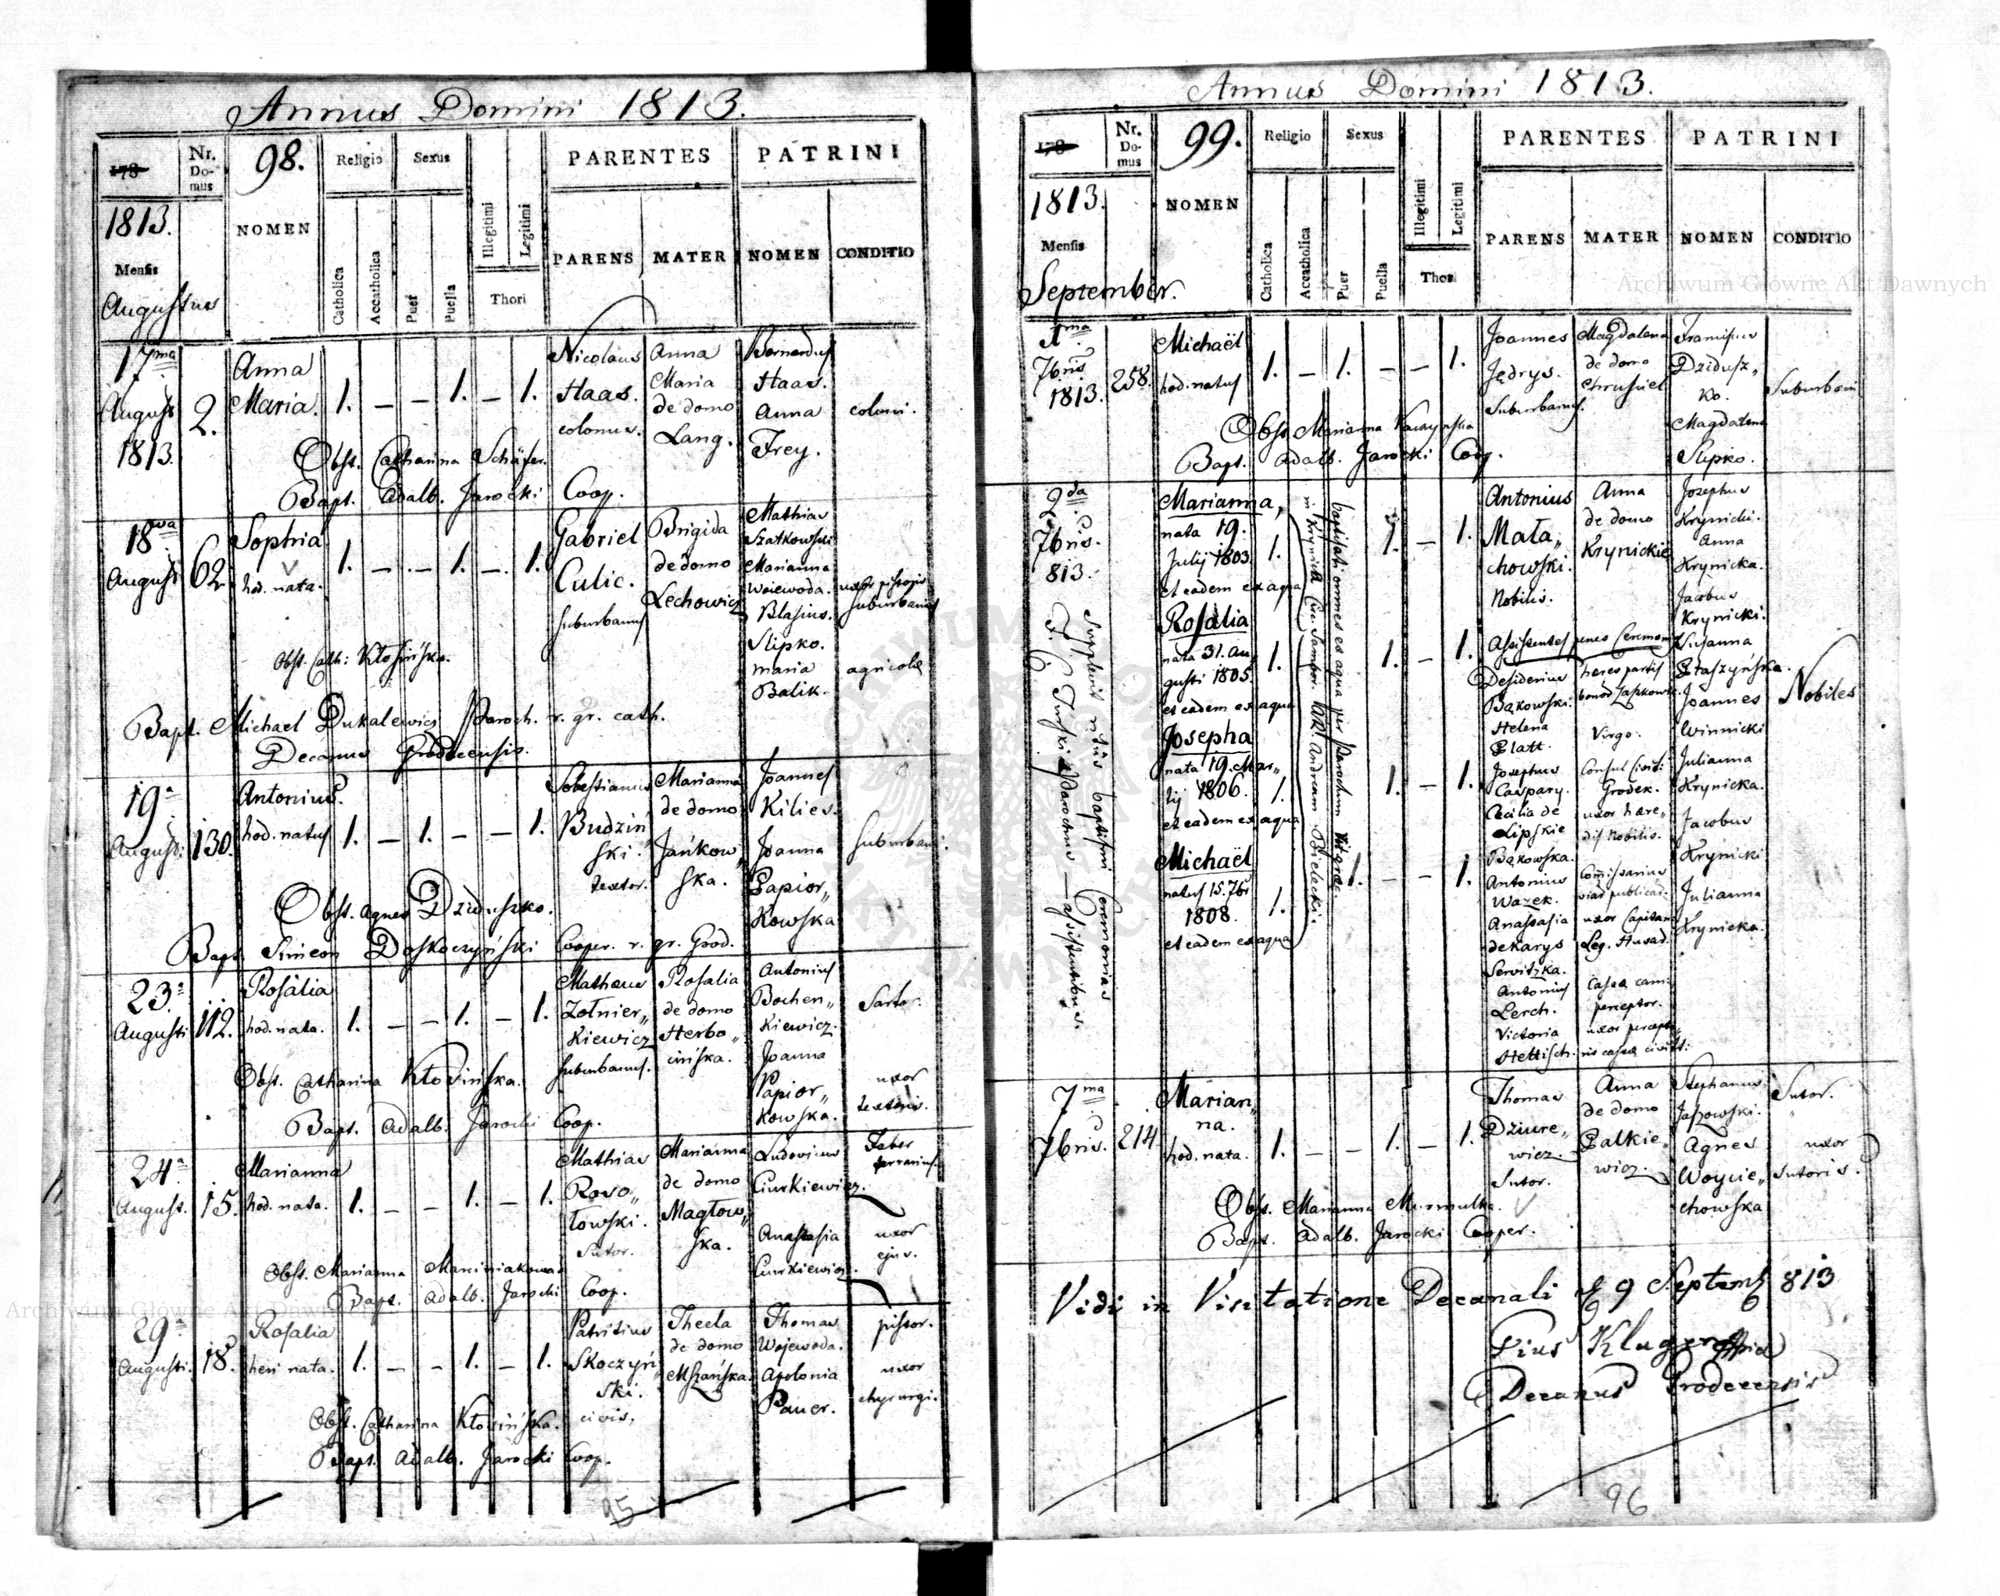 Annus Domini 1813.
178
Nr. Domus
98.
Religio
Sexus
PARENTES
PATRINI
1813.
Mensis
Augustus
NOMEN
Catholica
Accatholica
Puer
Puella
Illegitimi
Legitimi
Thori
PARENS
MATER
NOMEN
CONDITIO
17ma Augusti 1813.
2.
Anna
Maria.
1. — — 1. — 1.
Nicolaus
Haas.
colonus.
Anna
Maria
de domo
Lang.
Bernardus
Haas.
Anna
Frey.
coloni.
Obst. Catharina Schäfer.
Bapt. Adalb. Jarocki Coop.
18va Augusti
62.
Sophia
hod. nata.
1. — — 1. — 1.
Gabriel
Culic.
suburbanus
Brigida
de domo
Lechowicz
Mathias
Szatkowski
Marianna
Woiewoda.
Blasius.
Slipko.
maria
Balik.
uxor pistoris
suburbani
agricola
Obst. Cath: Kłosińska.
Bapt. Michael Dukalewicz Paroch. r. gr. cath.
Decanus Grodecensis.
19a Augusti.
130.
Antonius.
hod. natus
1. — 1. — — 1.
Sebestianus
Budziń
ski.
textor.
Marianna
de domo
Jańkow„
ska.
Joannes
Kilies.
Joanna
Papior„
Kowska
suburbani.
Obst. Agnes Dziduszko.
Bapt. Simeon Doskoczyński Cooper. r. gr. Grod.
23a Augusti
112.
Rosalia
hod. nata.
1. — — 1. — 1.
Matheus
Żołnier„
Kiewicz
suburbanus.
Rosalia
de domo
Herbo„
cińska.
Antonius
Bochen„
Kiewicz.
Joanna
Papior„
Kowska.
Sartor.
uxor
textoris.
Obst. Catharina Kłosińska.
Bapt. Adalb. Jarocki Coop.
24a August.
15.
Marianna
hod. nata.
1. — — 1. — 1.
Mathias
Roso„
łowski.
Sutor.
Marianna
de domo
Magłow„
ska.
Ludovicus
Ciurkiewicz.
Anastasia
Ciurkiewicz.
Faber
ferrarius.
uxor
ejus.
Obst. Marianna Marciniakowa
Bapt. Adalb. Jarocki Coop.
29a Augusti.
18.
Rosalia
heri nata.
1. — — 1. — 1.
Patritius
Skoczyń
ski.
civis.
Thecla
de domo
Mszańska.
Thomas
Wojewoda.
Apolonia
Pauer.
pistor.
uxor
chyrurgi.
Obst. Catharina Kłosińska.
Bapt. Adalb. Jarocki Coop.
95
Annus Domini 1813.
178
Nr. Domus
99.
Religio
Sexus
PARENTES
PATRINI
1813.
Mensis
September.
NOMEN
Catholica
Accatholica
Puer
Puella
Illegitimi
Legitimi
Thori
PARENS
MATER
NOMEN
CONDITIO
1ma 7bris 1813.
258.
Michaël
hod. natus
1. — 1. — — 1.
Joannes
Jędrys.
Suburbanus.
Magdalena
de domo
Chrusciel
Franciscus
Dzidusz„
ko.
Magdalena
Slipko.
Suburbani
Obst. Marianna
Bapt. Adalb. Jarocki Coop.
2da 7bris. 813.
Supplevit ritus baptismi Ceremonias
Turski Parochus — assistentibus.
Marianna,
nata 19.
Julij 1803.
et eadem ex aqua
Rosalia
nata 31. Au
gusti 1805.
et eadem ex aqua
Josepha
nata 19. Mar„
tij 1806.
et eadem ex aqua
Michaël
natus 15. 7bri
1808.
et eadem ex aqua
baptisati omnes ex aqua per Parochum Rit. graec.
in Krynica Circ. Sambor. Andream Bielecki.
1. 1. — 1.
1. 1. — 1.
1. 1. — 1.
1. 1. — — 1.
Antonius
Mała„
chowski.
Nobilis.
Anna
de domo
Krynickie
Assistentes penes Ceremon
Desiderius
Bąkowski.
Helena
Platt.
Josephus
Caspary.
Cecilia de
Lipskie
Bąkowska.
Antonius
Wazek.
Anastasia
dekarys
Servitzka.
Antonius
Lerch.
Victoria
Hettisch.
heres partis
bonor.
Virgo.
Consul Civit:
Grodek.
uxor hære„
dis Nobilis.
Comissarius
viar publicar.
uxor Capitan
Leg. Husar.
Cassæ cam:
perceptor.
uxor percepto„
ris cassæ civitt.
Josephus
Krynicki.
Anna
Krynicka.
Jacobus
Krynicki.
Susanna
Staszyńska.
Joannes
Winnicki
Julianna
Krynicka.
Jacobus
Krynicki
Julianna
Krynicka.
Nobiles
7ma 7bris.
214
Marian„
na.
hod. nata.
1. — — 1. — 1.
Thomas
Dziure„
wicz.
Sutor.
Anna
de domo
Palkie„
wicz.
Stephanus
Jaszowski.
Agnes
Woycie„
chowska
Sutor.
uxor
Sutoris.
Obst. Marianna Murmulka.
Bapt. Adalb. Jarocki Cooper.
Vidi in Visitatione Decanali d 9 Septemb 813
Pius Kluger
Decanus Grodecensis
96
Archiwum Główne Akt Dawnych
Archiwum Główne Akt Dawnych